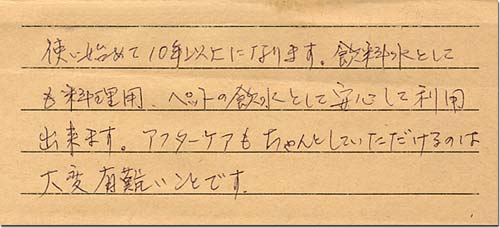 使い始めて10年以上になります。飲料水として
も料理用、ペットの飲水として安心して利用
出来ます。アフターケアもちゃんとしていただけるのは
大変有難いことです。